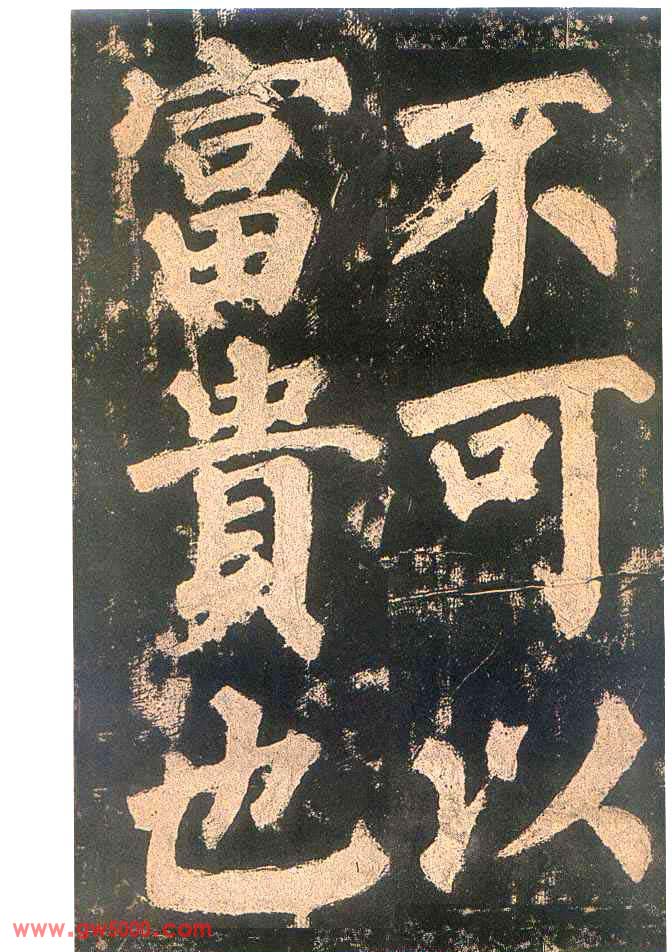 不可以
富貴也
www.gw5000.com